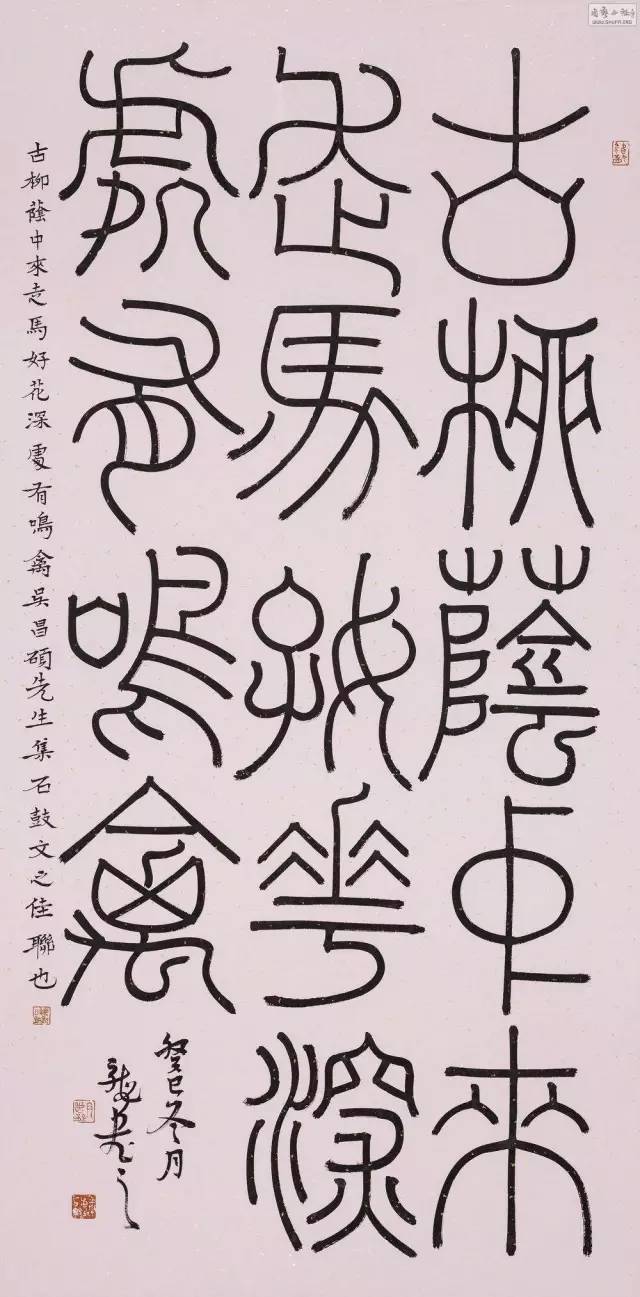 古柳蔭中來
走馬好花深
處有鳴禽
古柳蔭中來走馬好花深處有鳴禽吳昌碩先生集石鼓文之佳聯也
癸巳冬月
WWW.SHUFA.ORG